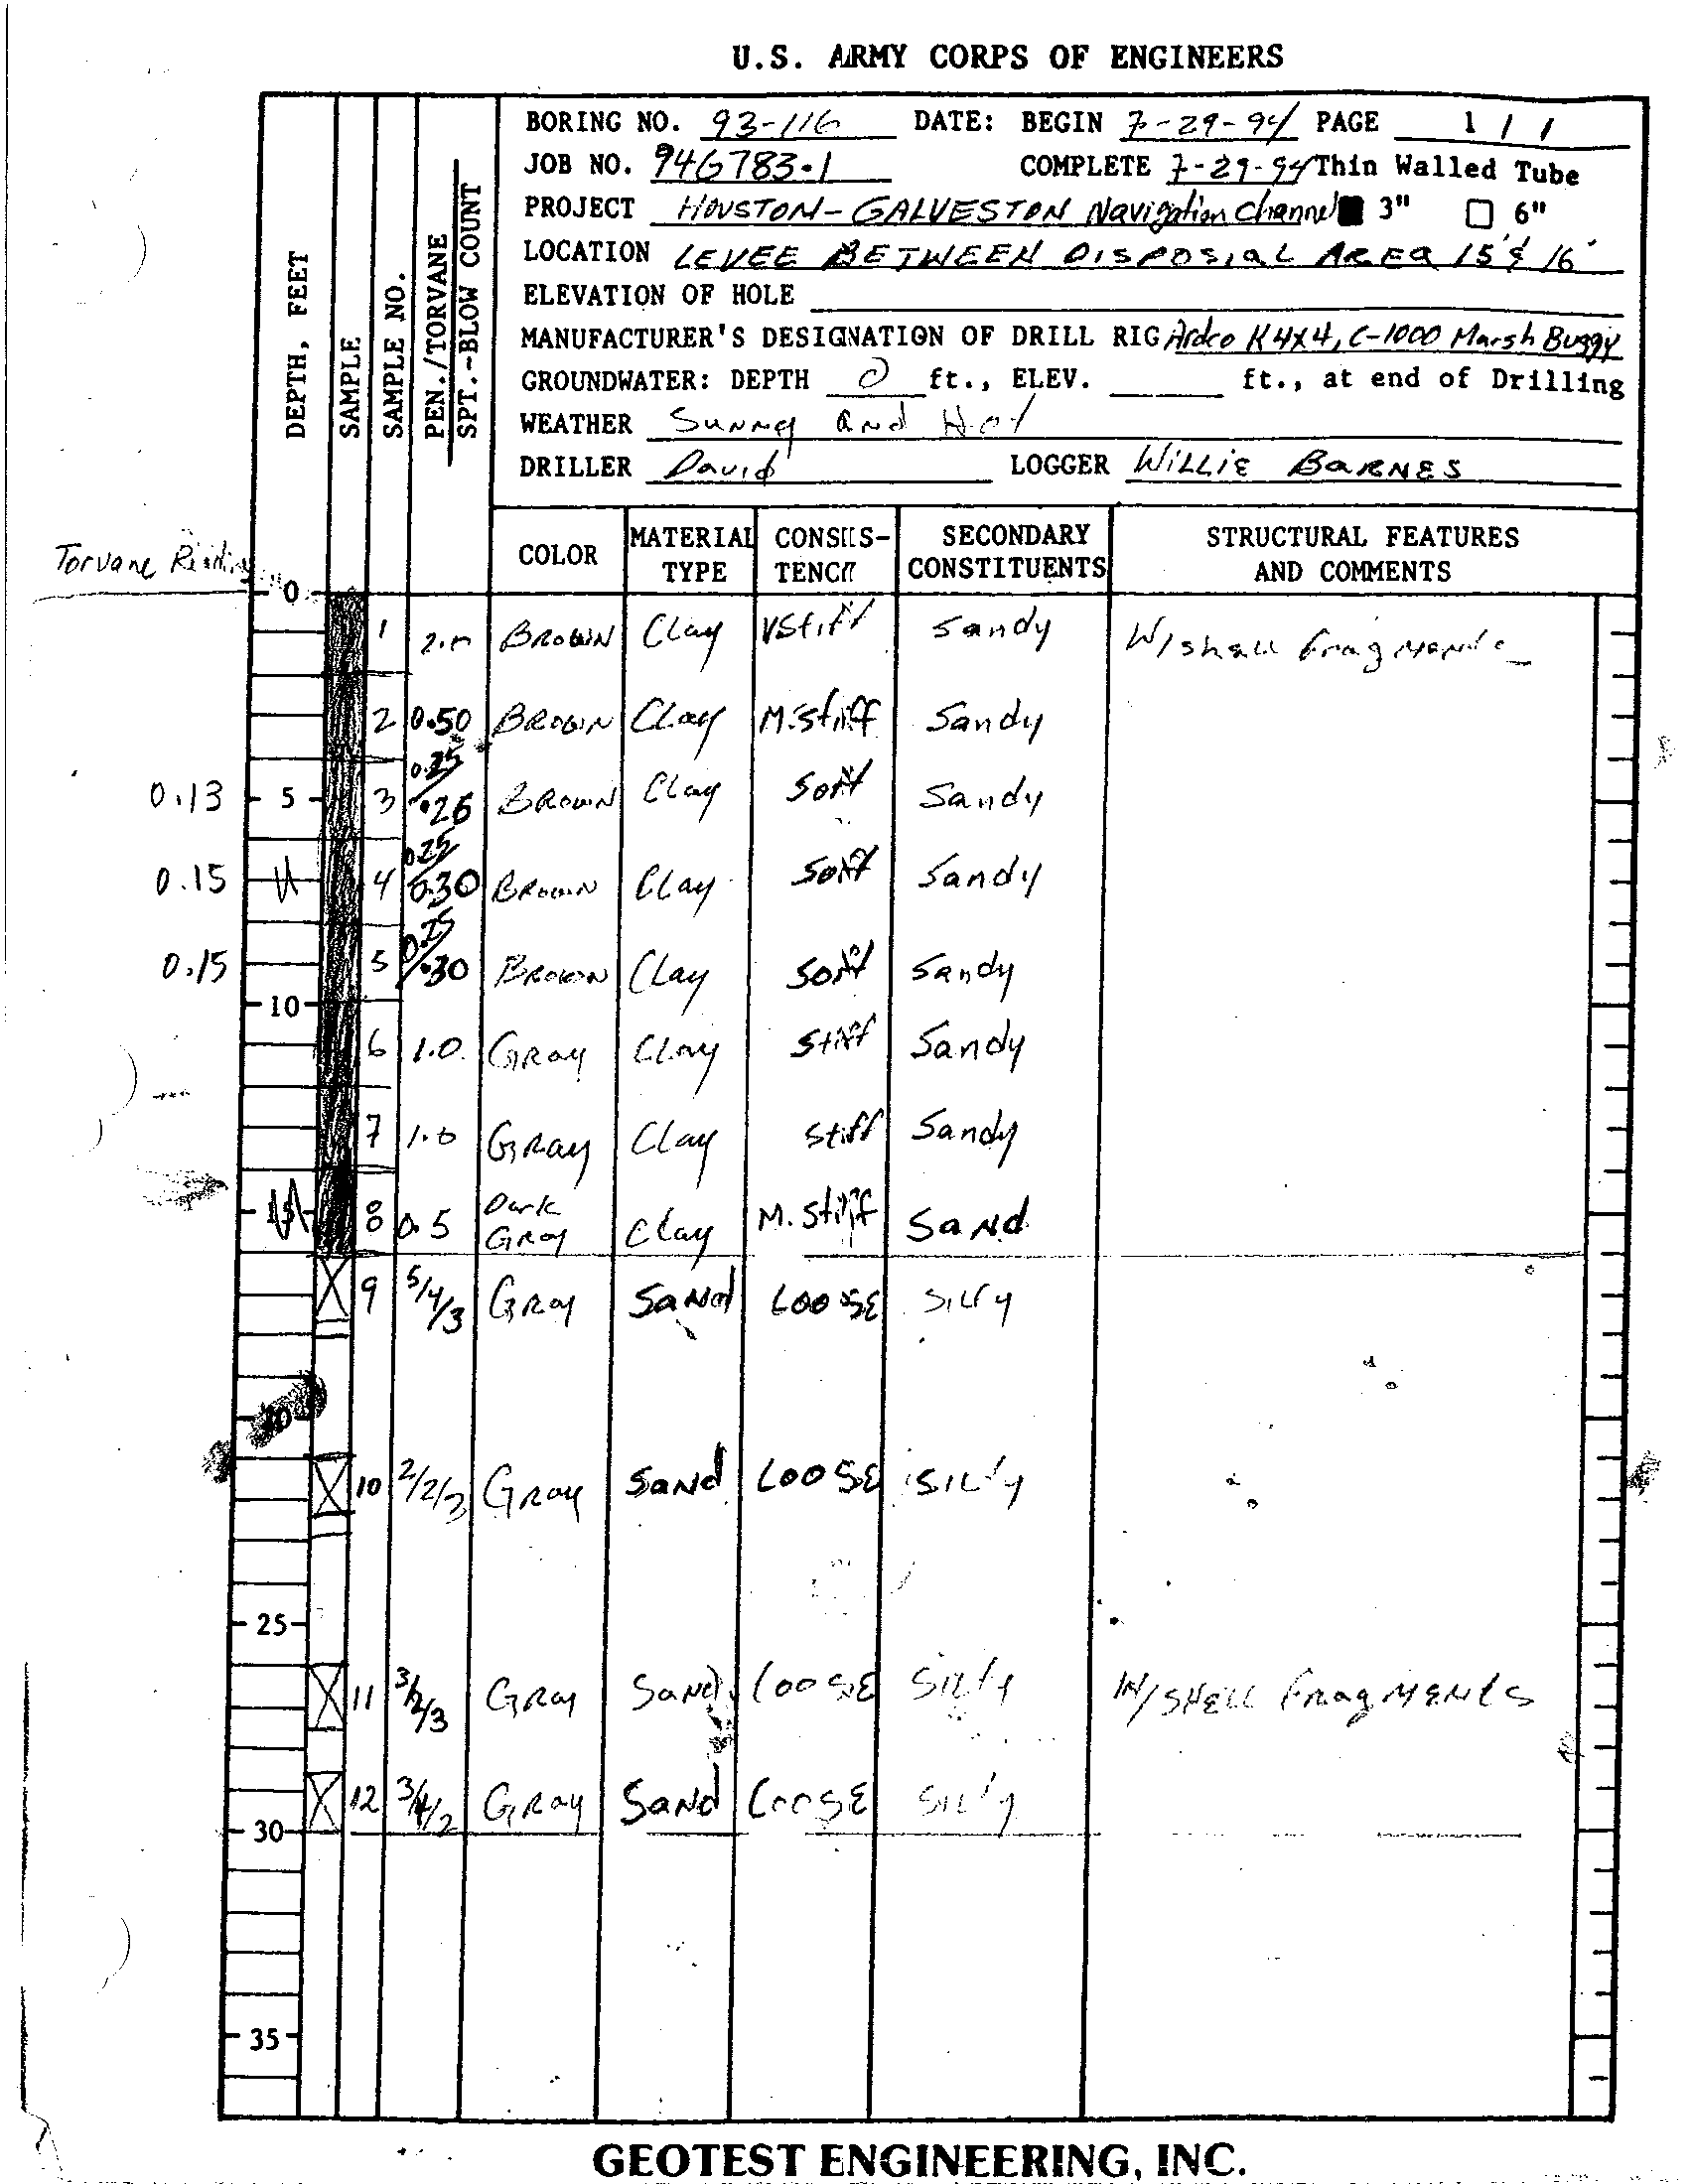 U.S. ARMY CORPS OF ENGINEERS
BORING NO. 93-116 DATE: BEGIN 7-29-94 PAGE 1 / 1
JOB NO. 94G783.1 COMPLETE 7-29-94 Thin Walled Tube
PROJECT HOUSTON-GALVESTON Navigation Channel ■ 3" □ 6"
LOCATION LEVEE BETWEEN DISPOSIAL AREA 15 & 16
ELEVATION OF HOLE
MANUFACTURER'S DESIGNATION OF DRILL RIG Ardco K4X4, C-1000 Marsh Buggy
GROUNDWATER: DEPTH 0 ft., ELEV. ft., at end of Drilling
WEATHER Sunny and Hot
DRILLER David LOGGER WILLIE BARNES
DEPTH, FEET
SAMPLE
SAMPLE NO.
PEN./TORVANE
SPT.-BLOW COUNT
COLOR MATERIAL TYPE CONSIS-TENCY SECONDARY CONSTITUENTS STRUCTURAL FEATURES AND COMMENTS
Torvane
0
1 2.0 BROWN Clay VStiff Sandy W/shell fragments
2 0.50 BROWN Clay M.stiff Sandy
0.13 5 3 0.25/.26 BROWN Clay Soft Sandy
0.15 4 0.25/0.30 BROWN Clay Soft Sandy
0.15 5 0.25/.30 BROWN Clay Soft Sandy
10
6 1.0 GRAY Clay Stiff Sandy
7 1.0 GRAY Clay Stiff Sandy
15 8 0.5 Dark GRAY Clay M. Stiff Sand
9 5/4/3 GRAY Sand LOOSE SILTY
20
10 2/2/3 GRAY SAND LOOSE SILTY
25
11 3/2/3 GRAY SAND LOOSE SILTY W/SHELL FragMENTS
12 3/4/2 GRAY SAND LOOSE SILTY
30
35
GEOTEST ENGINEERING, INC.